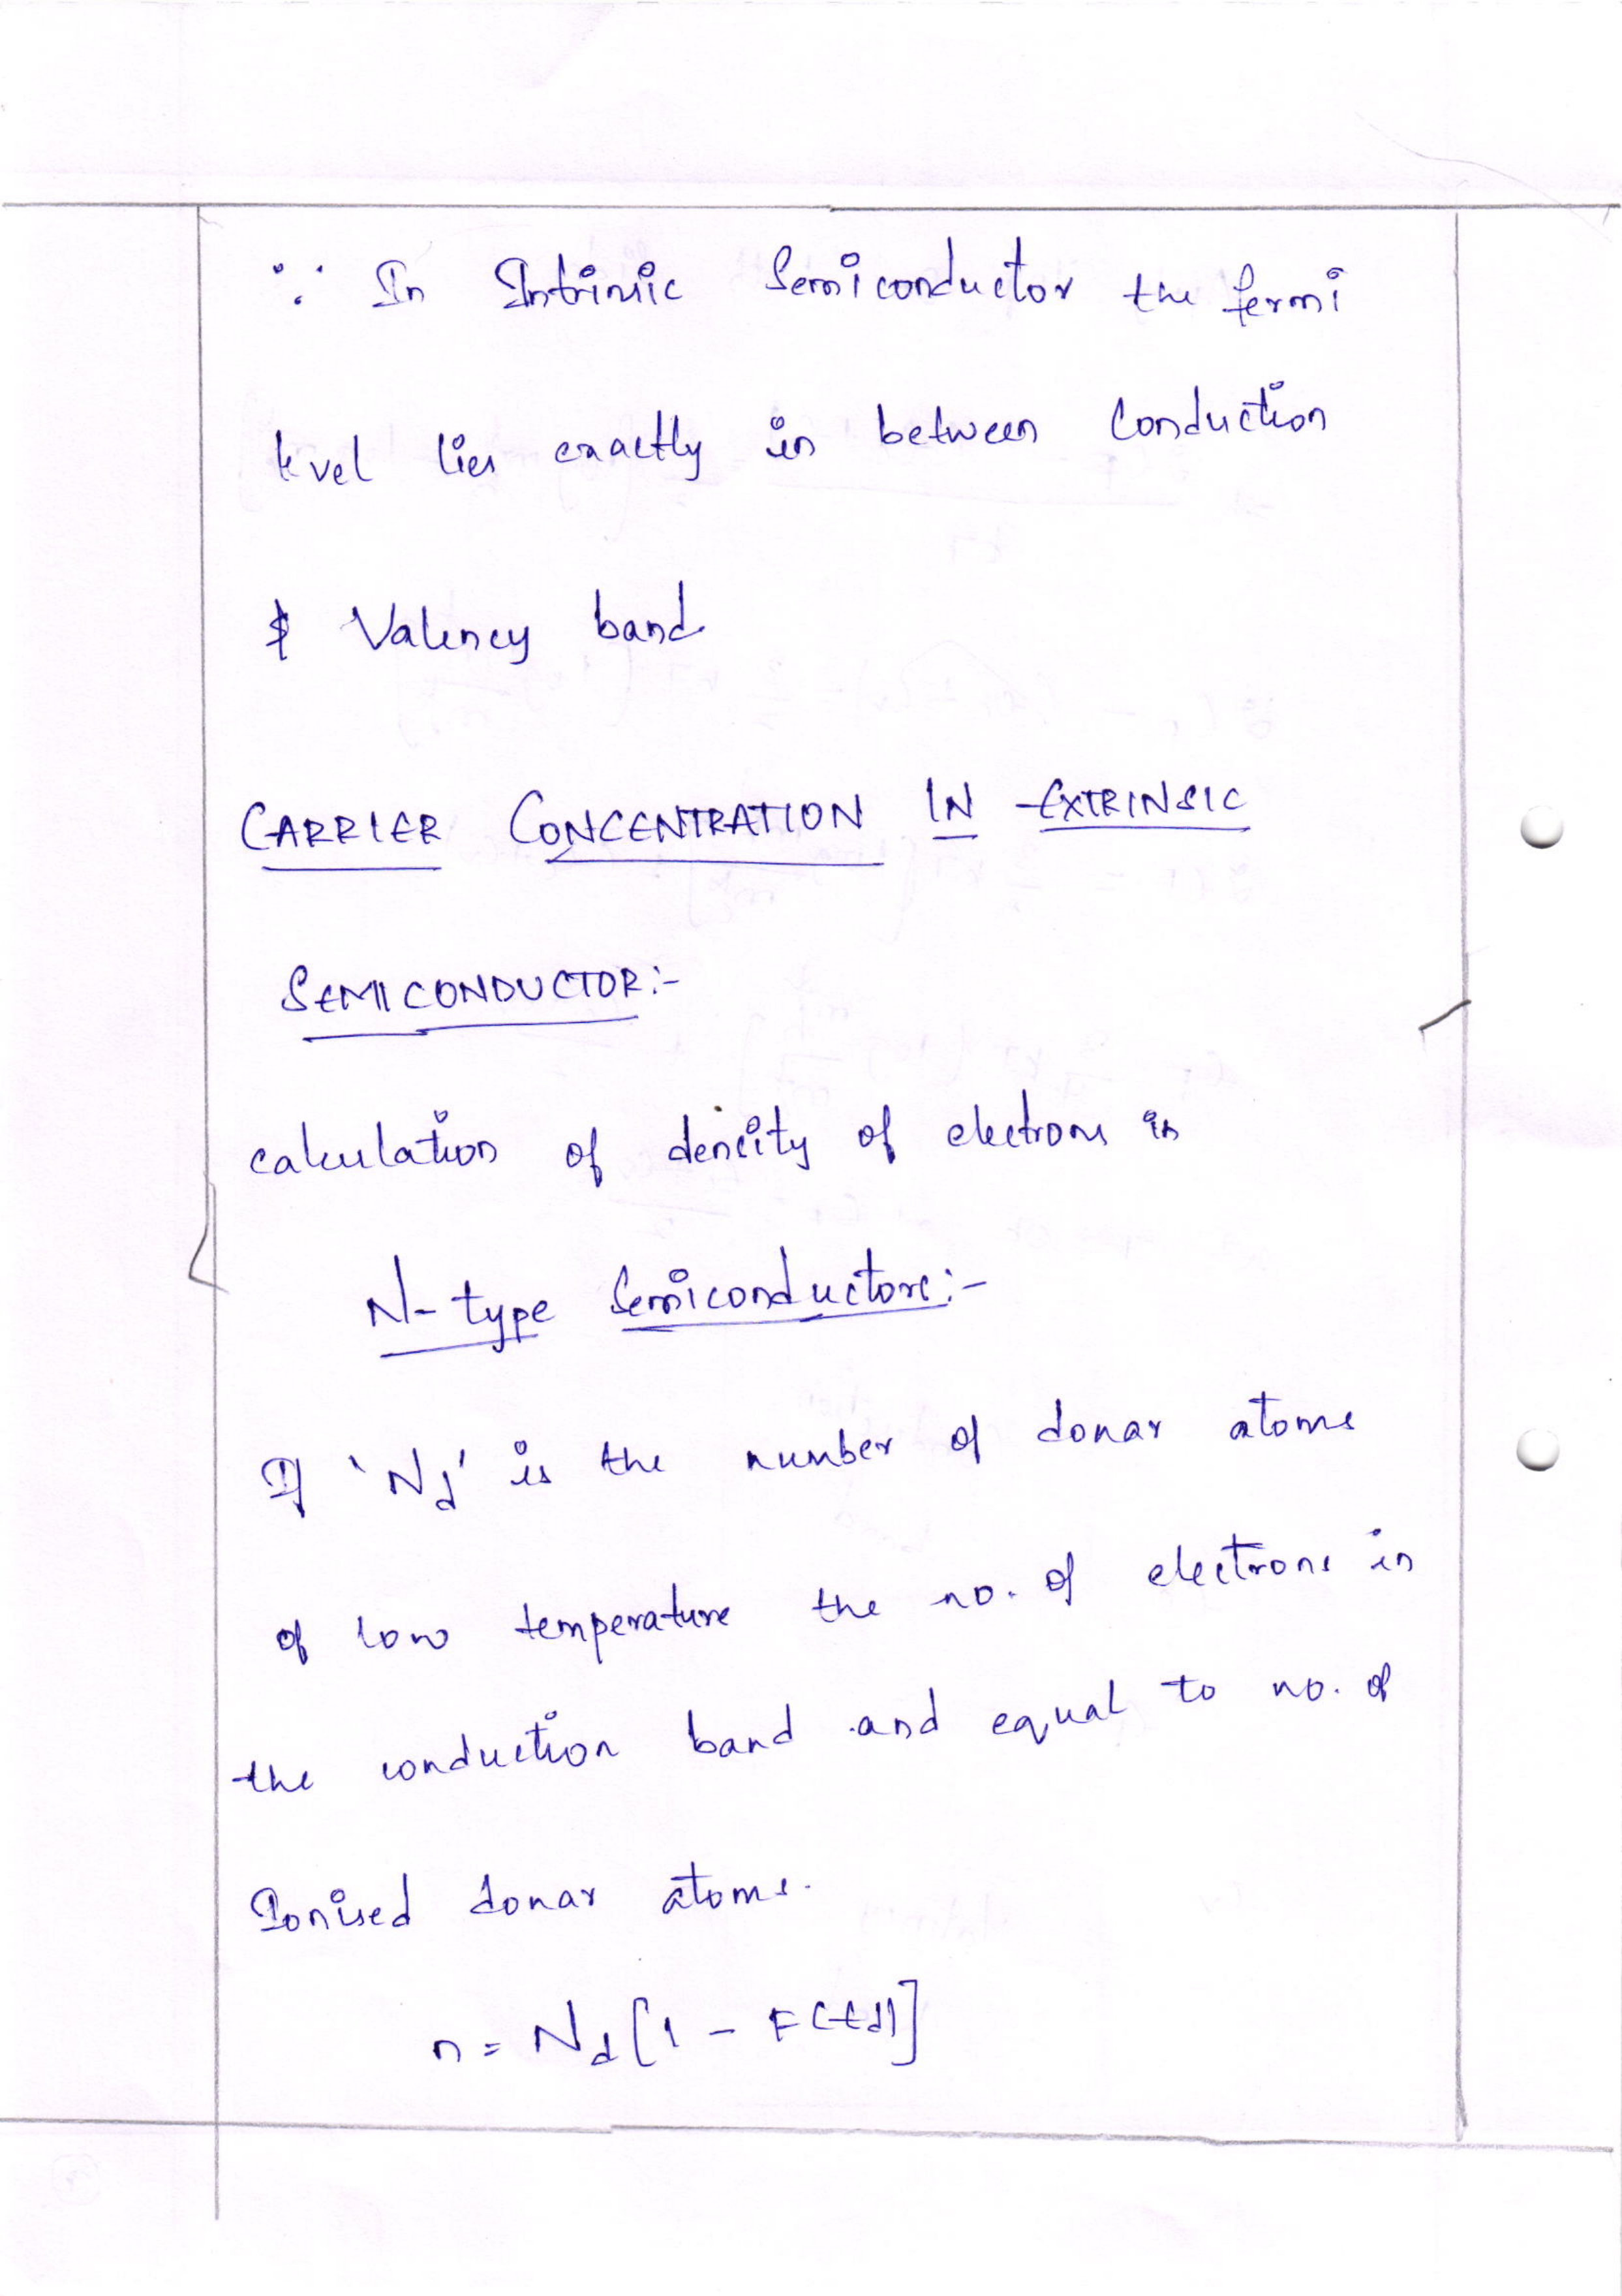 ∵ In Intrinsic Semiconductor the fermi
level lies exactly in between Conduction
& Valency band
CARRIER CONCENTRATION IN EXTRINSIC
SEMICONDUCTOR:-
calculation of dencity of electrons in
N-type Semiconductors:-
If 'Nd' is the number of donar atoms
of low temperature the no. of electrons in
the conduction band and equal to no. of
Ionised donar atoms.
n = Nd[1 - F(Ed)]